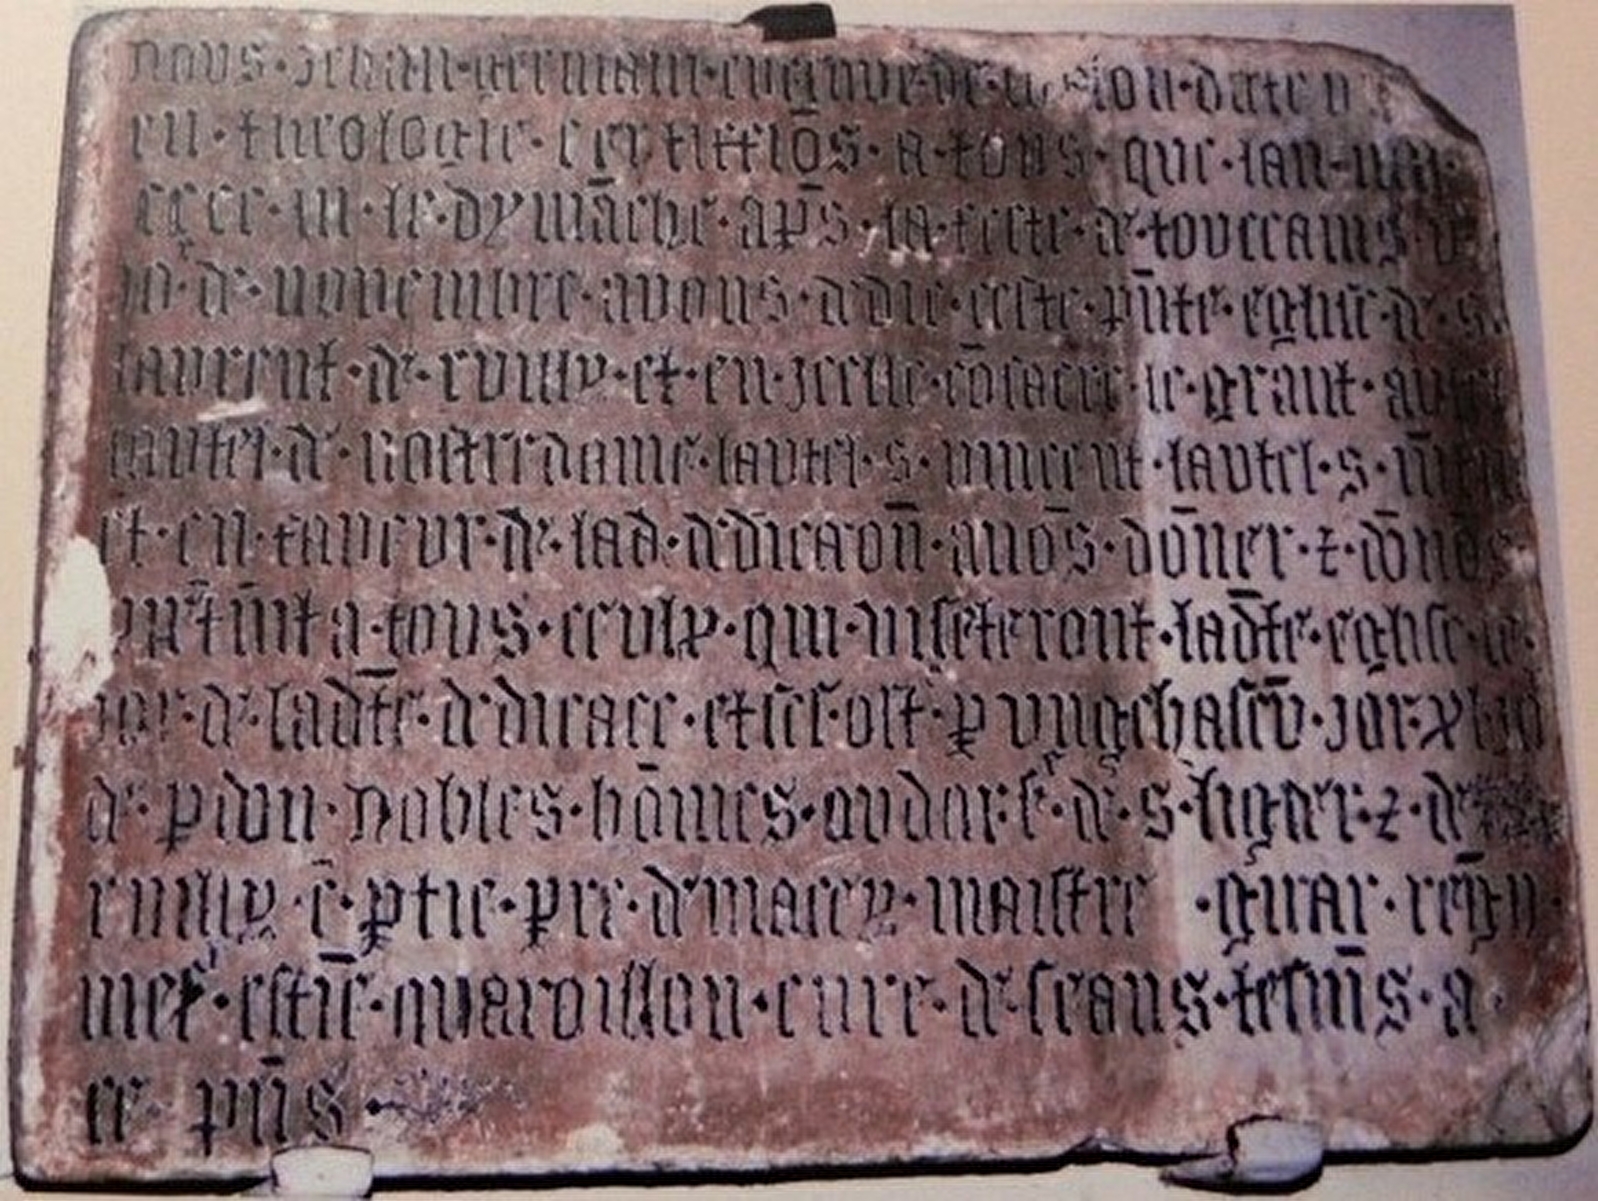 nous · jehan · germain · evesque · de · docteu
en · theologie · certiffiōs · a · tous · que · lan · mil ·
cccc · · le · dymāche · ap̄s · la · feste · de · touccains ·
de · novembre · avons · dedie · ceste · p̄nte · eglise · de · s ·
laurent · de · rully · et · en · jcelle · cōsacre · le · grant · autel
lautel · de · nostre dame · lautel · s · vincent · lautel · s ·
et · en · faveur · de · lad · dedicacōn · avōs · dōner · z · dōnōs
a · tous · ceulx · qui · viseteront · ladt̄e · eglise · le ·
jor · de · ladt̄e · dedicace · et · ses · oct · p ung chascū · jor · xl jo
de · pdon · nobles · hōmes · oudart · sr · de · s · ligier · z · de
rully · ē · ptie · pre · de macey · maistre · girar ·
mer · estiēe · quaroillon · cure · de · ceans · tesmīs · a ·
ce p̄ns ·